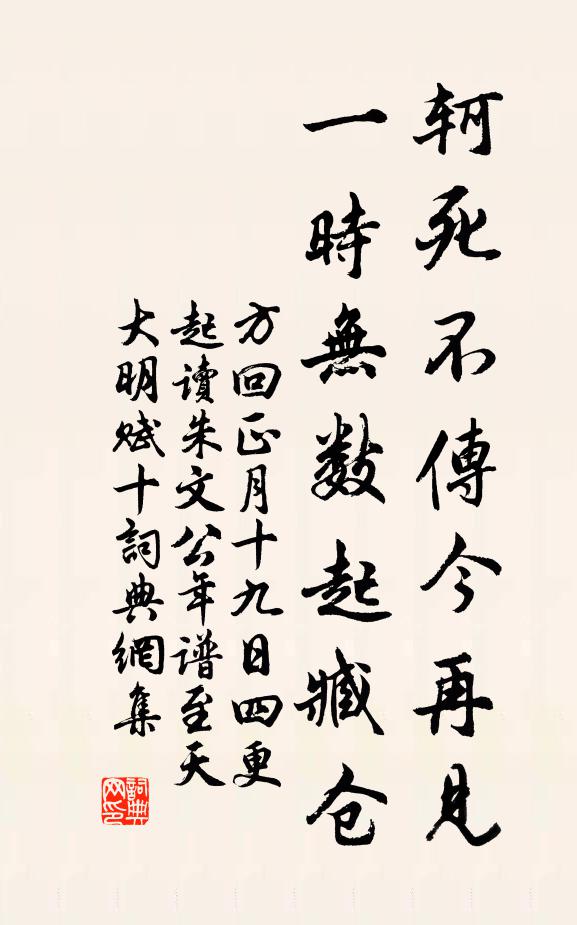 轲死不傳今再見
一時無數起臧仓
方回正月十九日四更
起讀朱文公年谱至天
大明赋十詞典網集
詞典网印